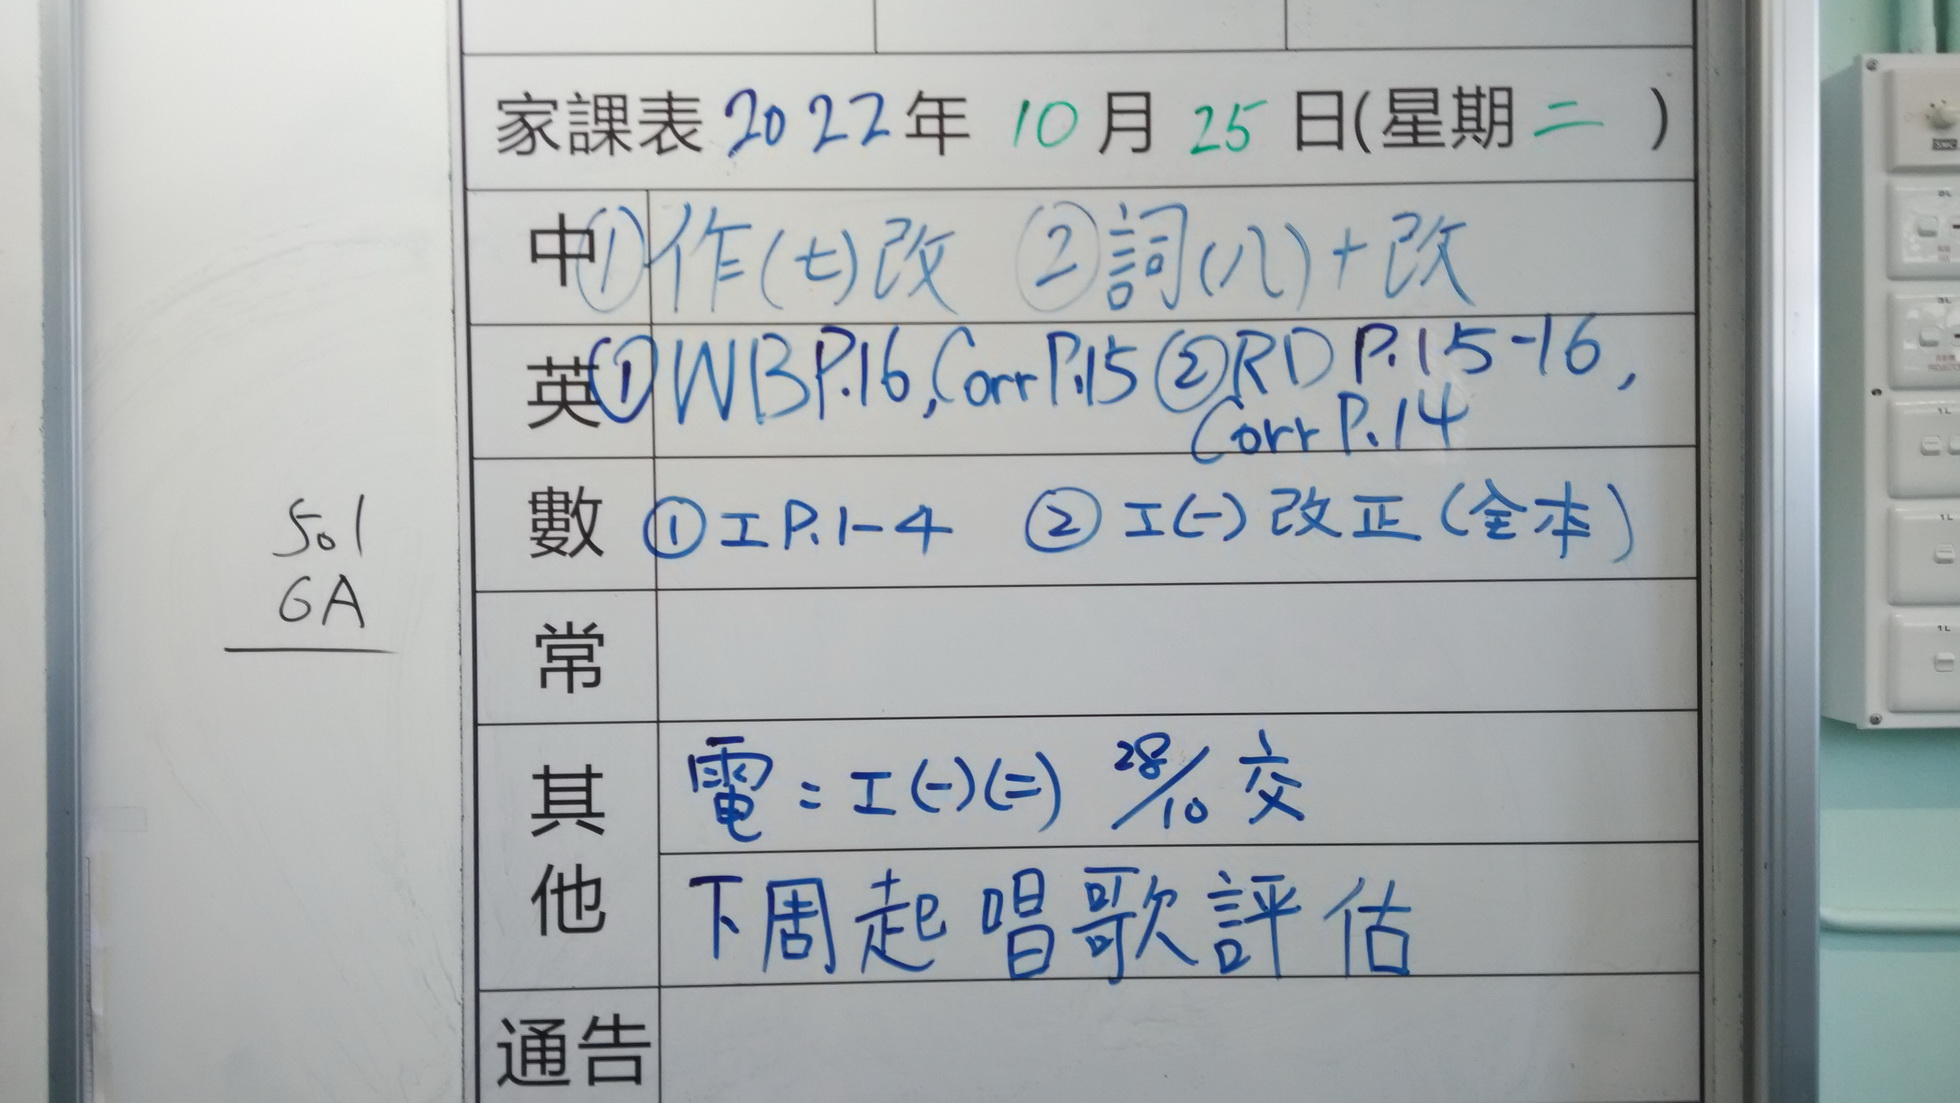 家課表 2022年 10月 25日(星期二 )
中 ①作(七)改 ②詞(八)+改
英 ①WB P.16, Corr P.15 ②RD P.15-16,
Corr P.14
數 ①工 P.1-4 ②工(一)改正(全本)
501
6A
常
其他
電:工(一)(二) 28/10 交
下周起唱歌評估
通告